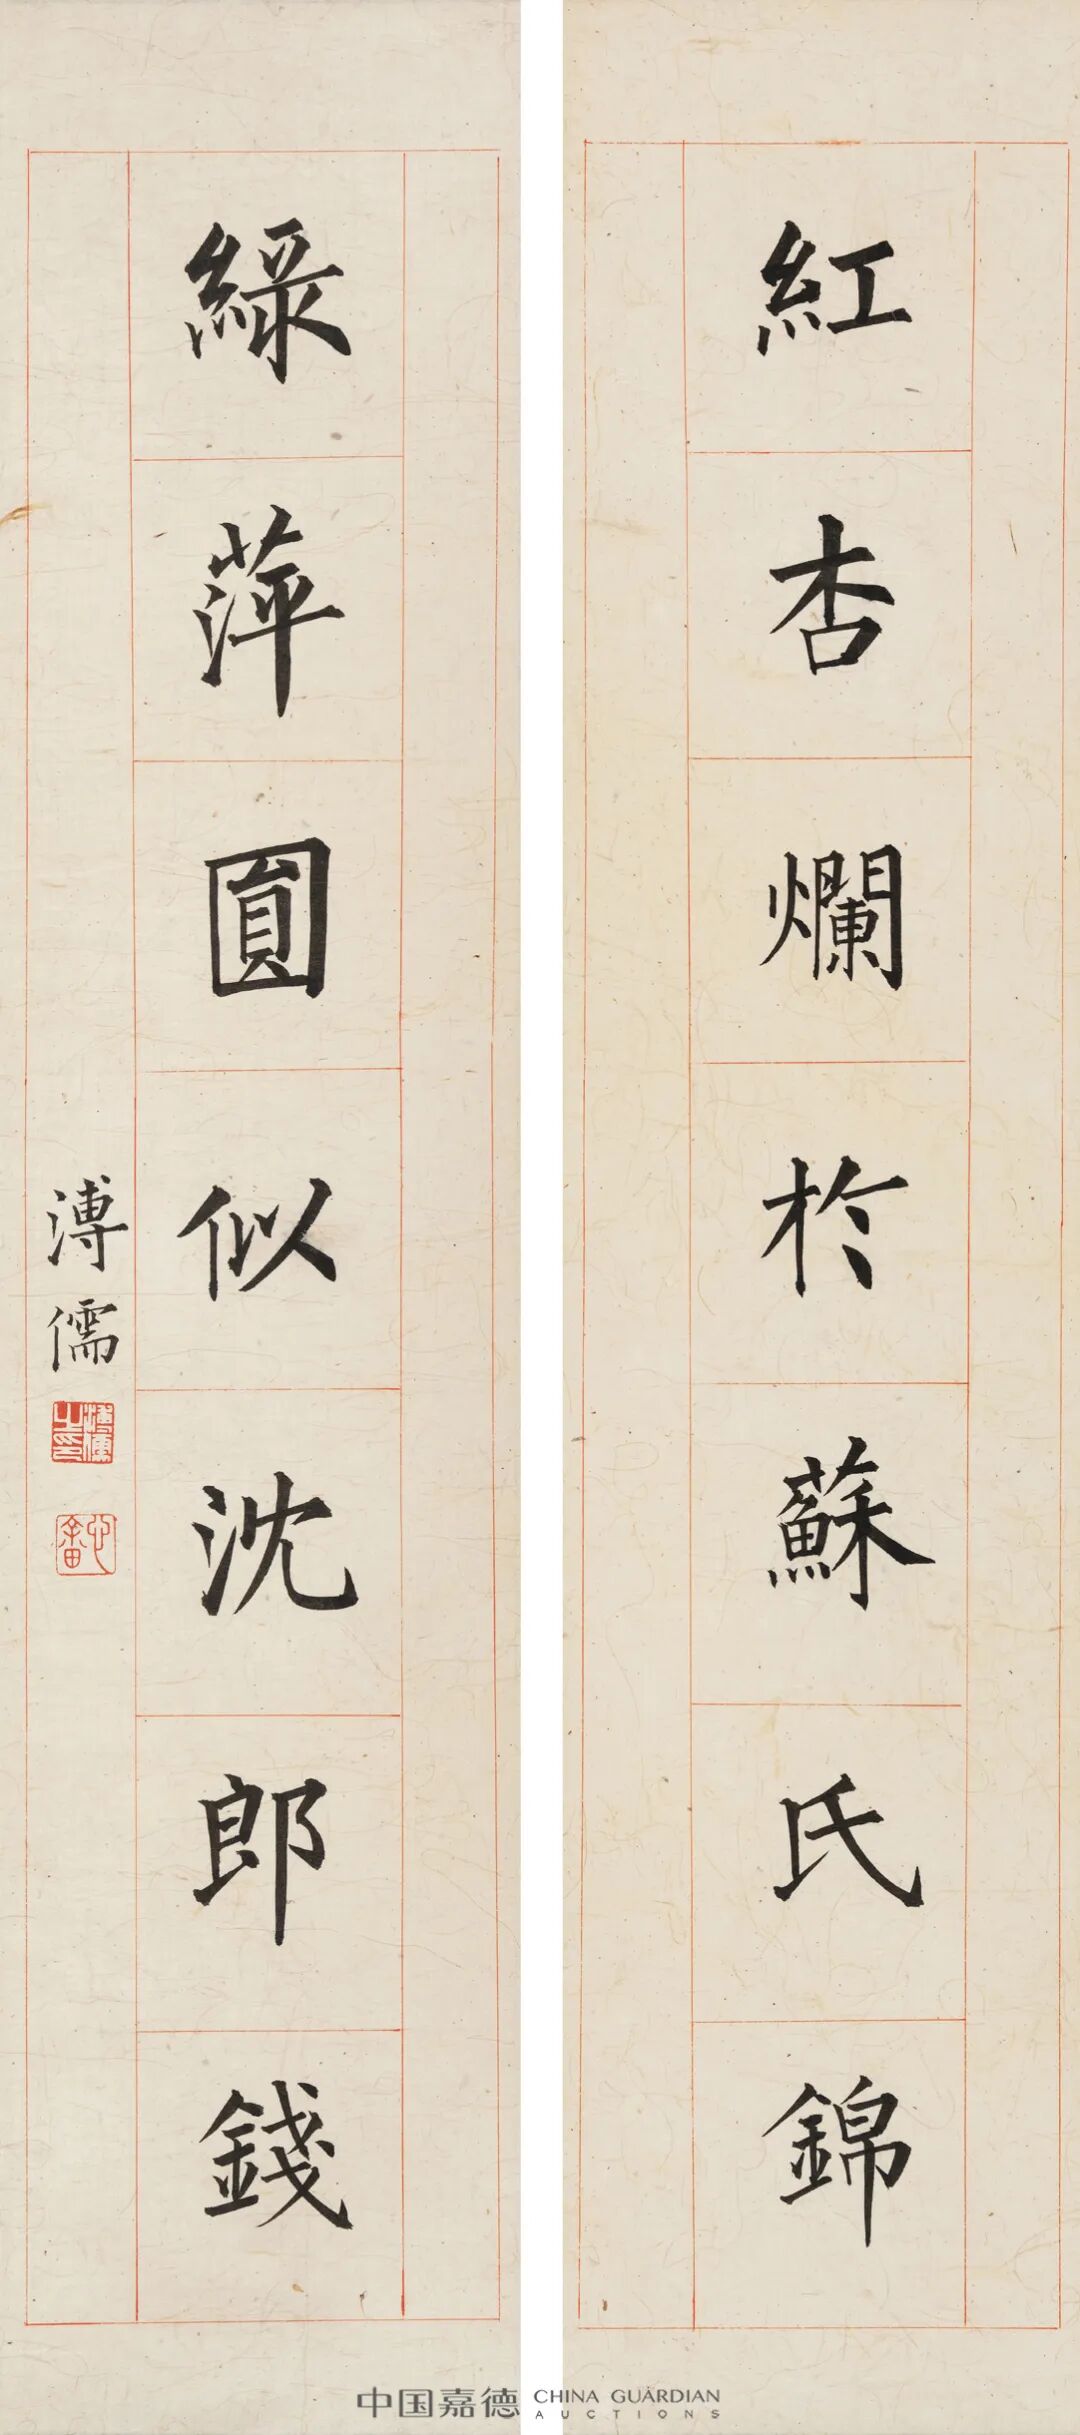 紅杏爛於蘇氏錦
綠萍圓似沈郎錢
溥儒
溥儒之印
中国嘉德 CHINA GUARDIAN AUCTIONS